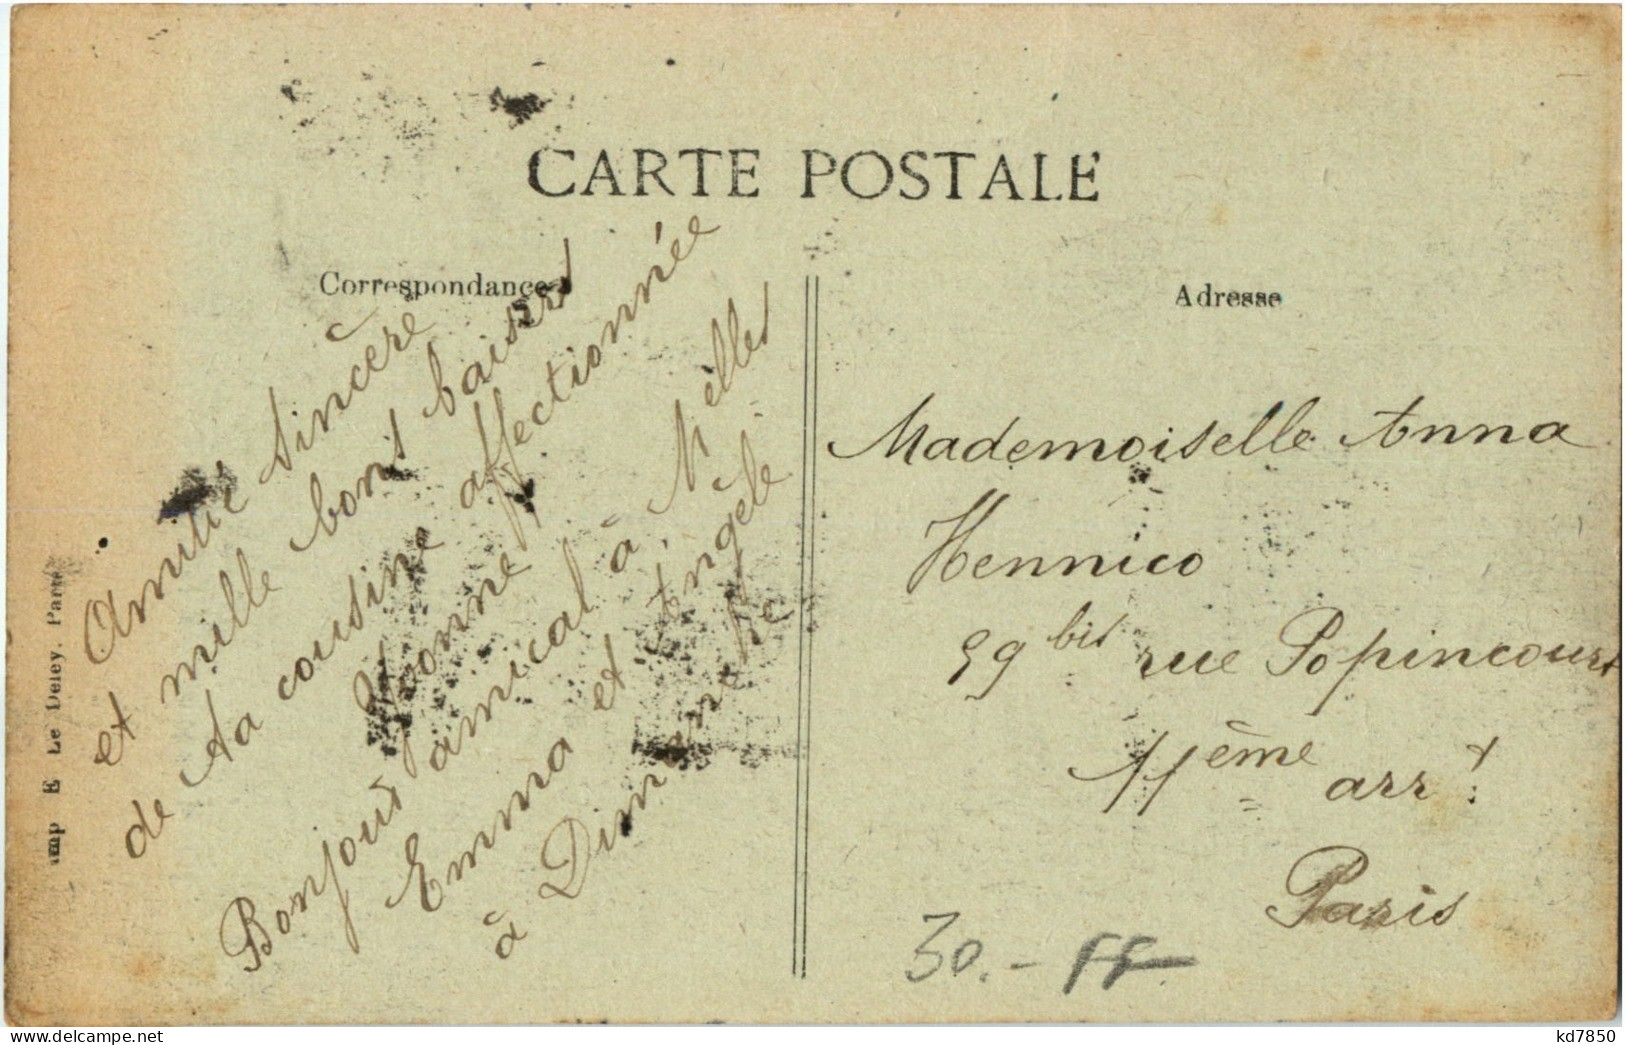 CARTE POSTALE
Correspondance
Adresse
Amitié sincère
et mille bons baisers
de ta cousine affectionnée
Yvonne
Bonjour amical à Melles
Emma et Angèle
à Dimanche
Mademoiselle Anna
Hennico
59 bis rue Popincourt
11ème arrt
Paris
30.- FF
Imp E Le Deley, Paris
kd7850